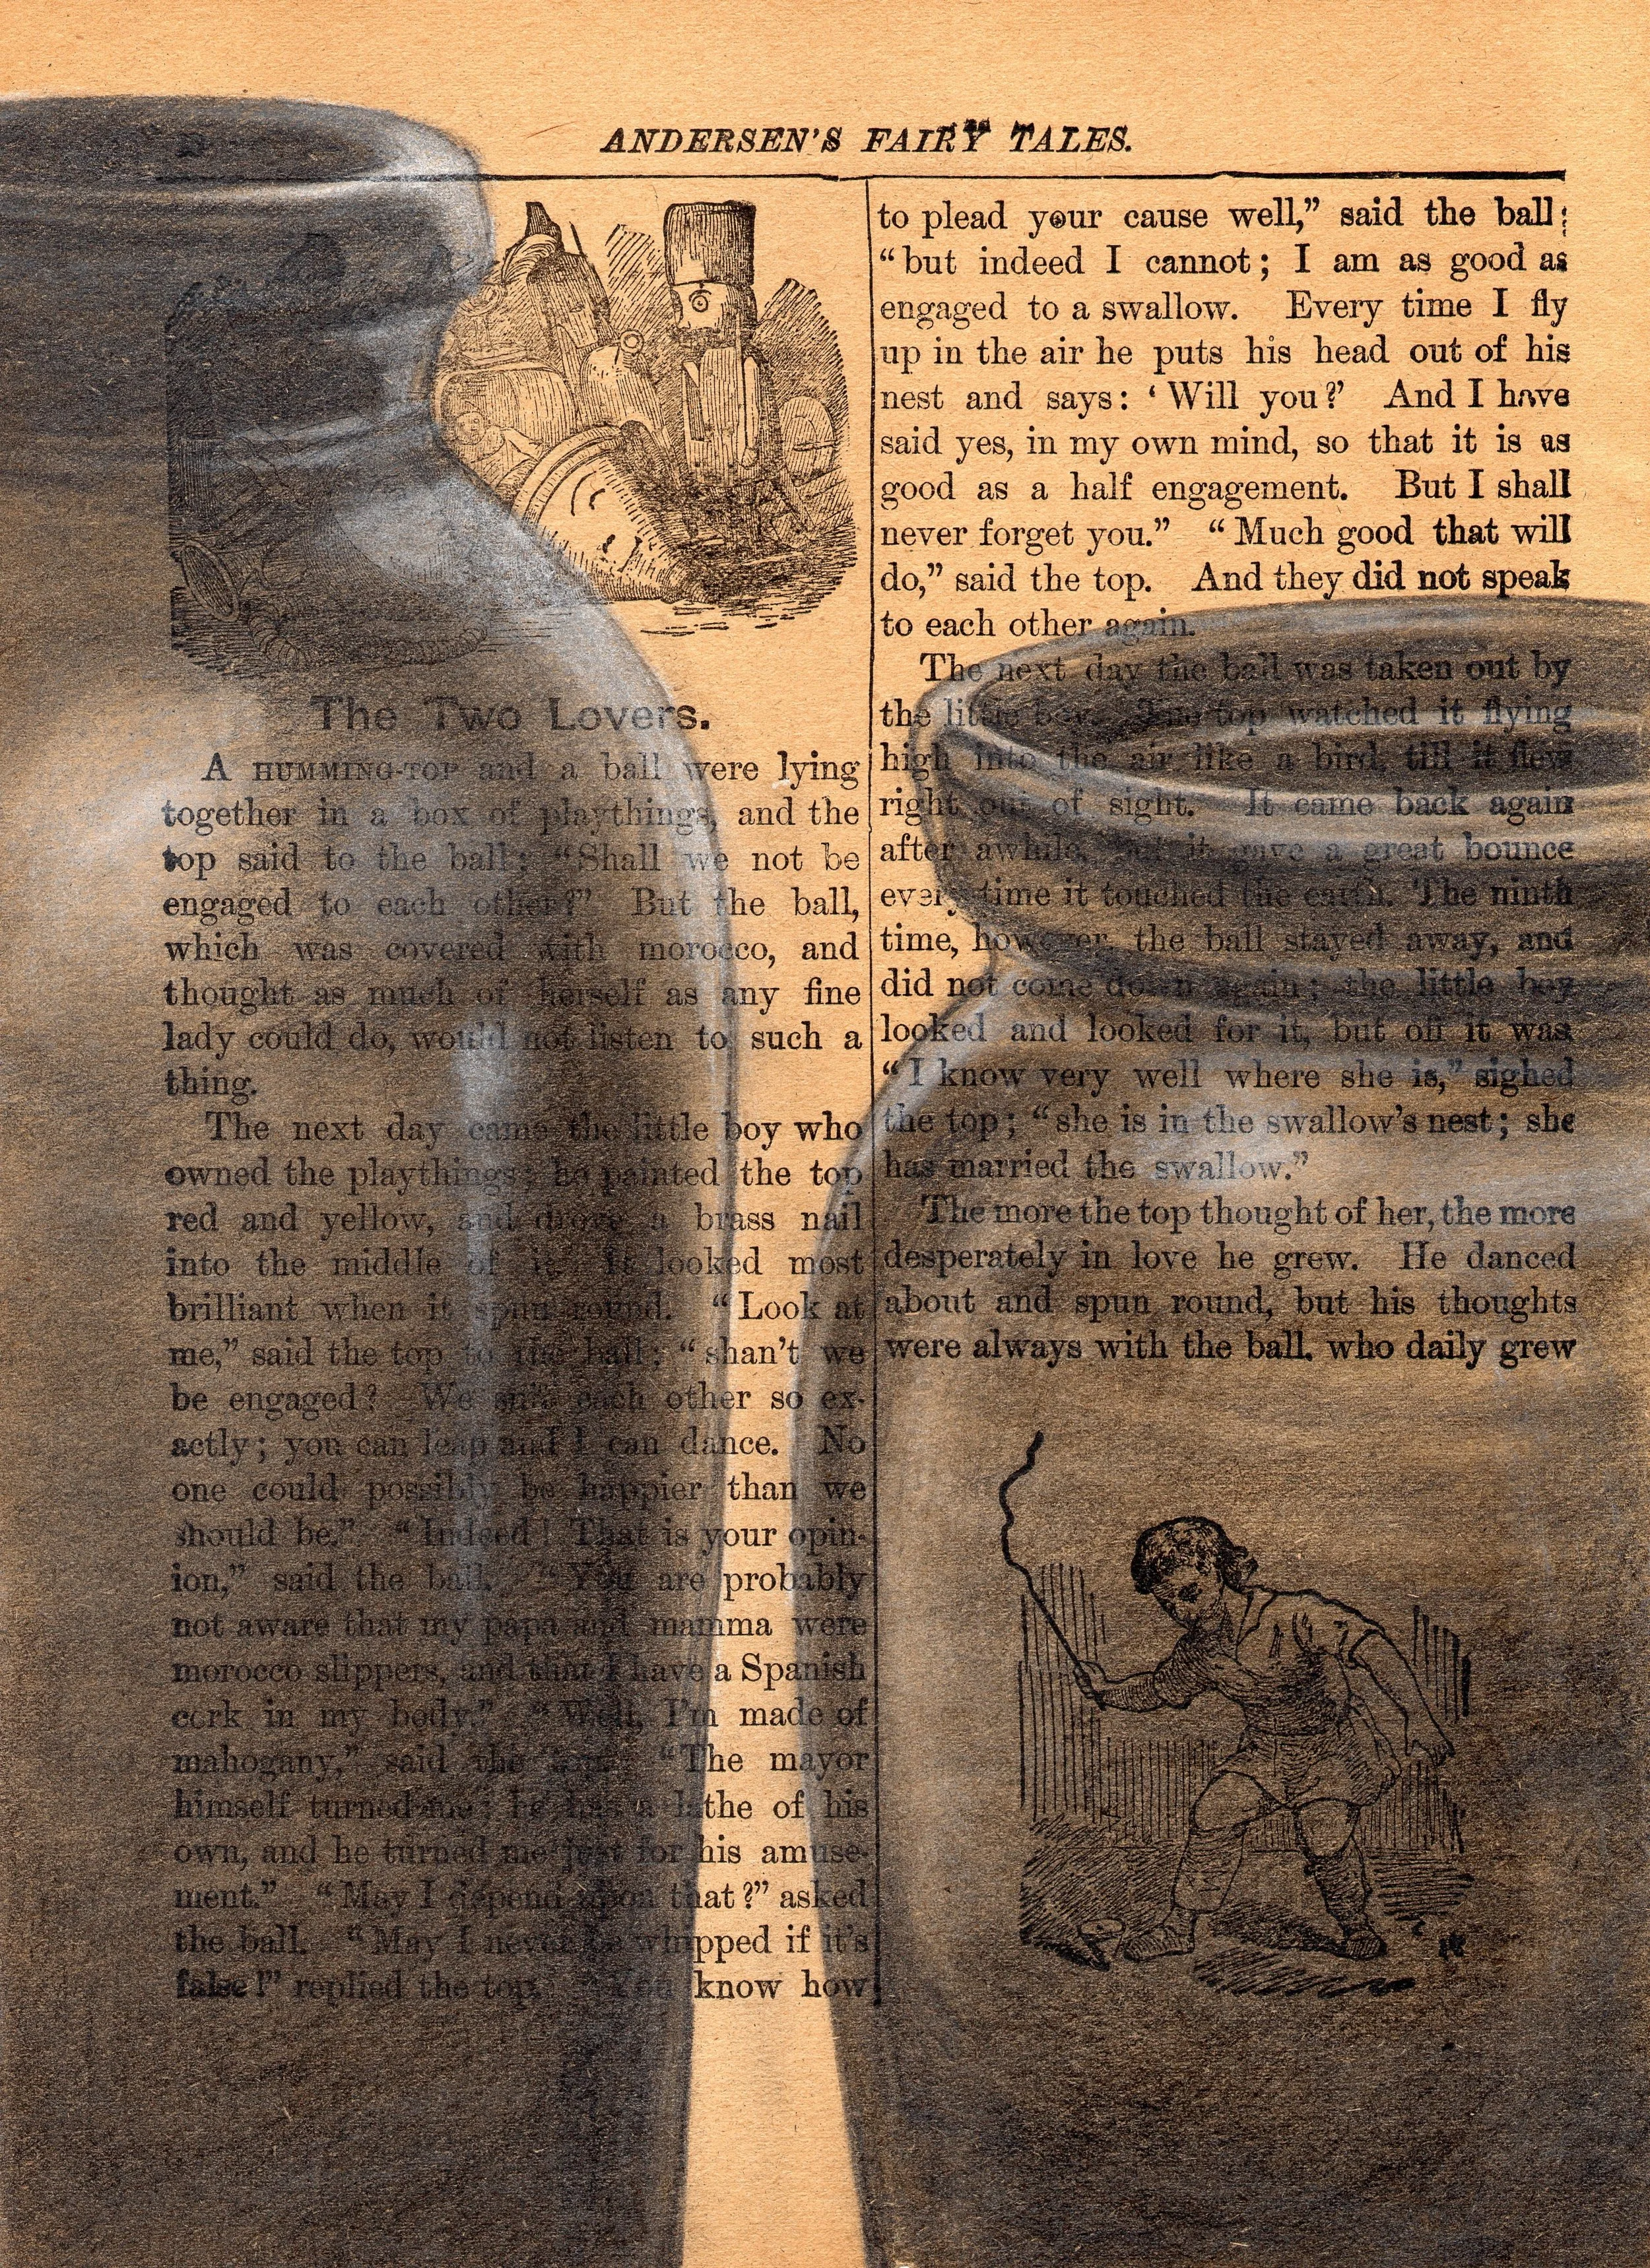 ANDERSEN'S FAIRY TALES.
The Two Lovers.
A HUMMING-TOP and a ball were lying
together in a box of playthings, and the
top said to the ball: “Shall we not be
engaged to each other?” But the ball,
which was covered with morocco, and
thought as much of herself as any fine
lady could do, would not listen to such a
thing.
The next day came the little boy who
owned the playthings; he painted the top
red and yellow, and drove a brass nail
into the middle of it. It looked most
brilliant when it spun round. “Look at
me,” said the top to the ball; “shan't we
be engaged? We suit each other so ex-
actly; you can leap and I can dance. No
one could possibly be happier than we
should be.” “Indeed! That is your opin-
ion,” said the ball. “You are probably
not aware that my papa and mamma were
morocco slippers, and that I have a Spanish
cork in my body.” “Well, I'm made of
mahogany,” said the top. “The mayor
himself turned me; he has a lathe of his
own, and he turned me just for his amuse-
ment.” “May I depend upon that?” asked
the ball. “May I never be whipped if it's
false!” replied the top. “You know how
to plead your cause well,” said the ball;
“but indeed I cannot; I am as good as
engaged to a swallow. Every time I fly
up in the air he puts his head out of his
nest and says: ‘Will you?’ And I have
said yes, in my own mind, so that it is as
good as a half engagement. But I shall
never forget you.” “Much good that will
do,” said the top. And they did not speak
to each other again.
The next day the ball was taken out by
the little boy. The top watched it flying
high into the air like a bird, till it flew
right out of sight. It came back again
after awhile, but it gave a great bounce
every time it touched the earth. The ninth
time, however, the ball stayed away, and
did not come down again; the little boy
looked and looked for it, but off it was
“I know very well where she is,” sighed
the top; “she is in the swallow's nest; she
has married the swallow.”
The more the top thought of her, the more
desperately in love he grew. He danced
about and spun round, but his thoughts
were always with the ball, who daily grew